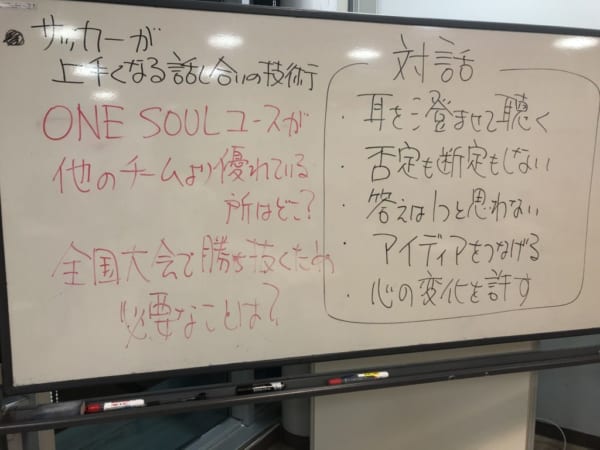 サッカーが
上手くなる話し合いの技術行
ONE SOULコースが
他のチームより優れている
所はどこ?
全国大会で勝ち抜くため
必要なことは?
対話
・耳を澄ませて聴く
・否定も断定もしない
・答えは1つと思わない
・アイディアをつなげる
・心の変化を許す